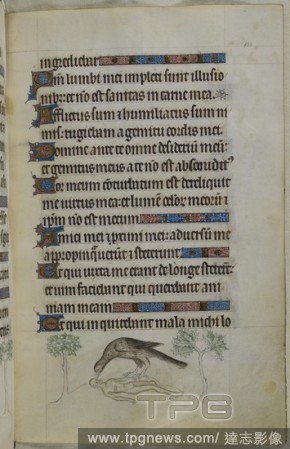 ingrediebar
Qm lumbi mei impleti sunt illusio
nibz: et nõ est sanitas in carne mea.
Afflictus sum et humiliatus sum ni
mis: rugiebam a gemitu cordis mei
Domine ante te omne desiderium meũ:
et gemitus meus a te nõ est absconditꝰ
Cor meum cõturbatum est dereliquit
me uirtus mea: et lumẽ oculoꝝ meoꝝ et
ipm̃ nõ est mecum
Amici mei et proximi mei: aduersũ me
appropinquauerunt et steterunt
Et qui iuxta me erant de longe steterũt:
et uim faciebant qui querebant ani
mam meam
Et qui inquirebant mala michi lo
TPG
www.tpgnews.com/ 達志影像